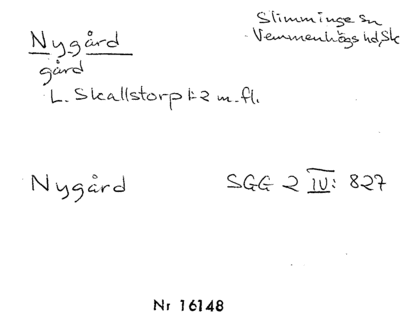 Slimminge sn
Vemmenhögs hd, Sk
Nygård
gård
L. Skallstorp 1:2 m. fl.
Nygård SGG 2 IV: 827
Nr 16148